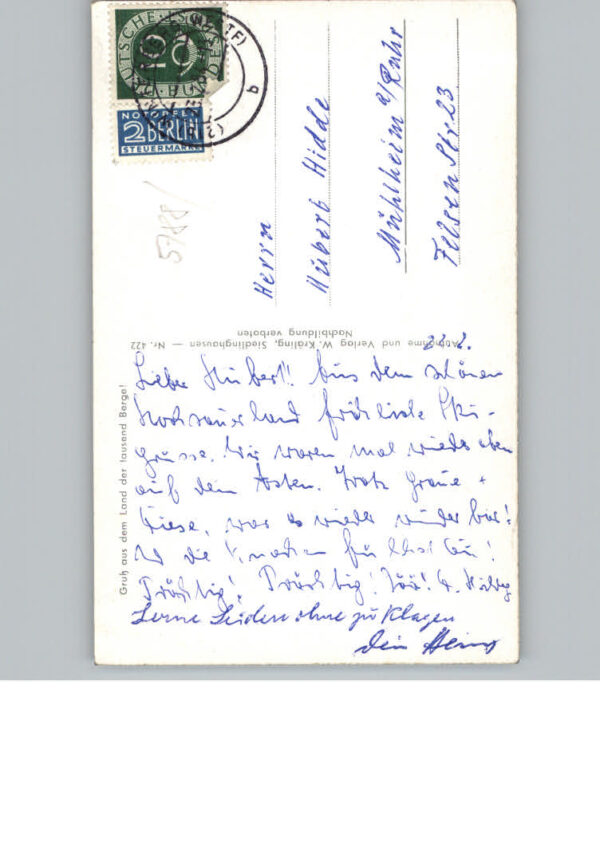 DEUTSCHE
BUNDESPOST
10
NOTOPFER
2 BERLIN
STEUERMARKE
5788/
Herrn
Hubert Hidde
Mühlheim a/Ruhr
Felsenstr 23
Aufnahme und Verlag W. Kräling, Siedlinghausen — Nr. 422
Nachbildung verboten
Gruß aus dem Land der tausend Berge!
Lieber Hubert! Aus dem schönen
Hochsauerland fröhliche Ski-
grüsse. Wir waren mal wieder oben
auf dem Asten. Trotz +
war es wieder wunderbar!
die
Prächtig! Prächtig!
Lerne Leiden ohne zu Klagen
Dein Heinz